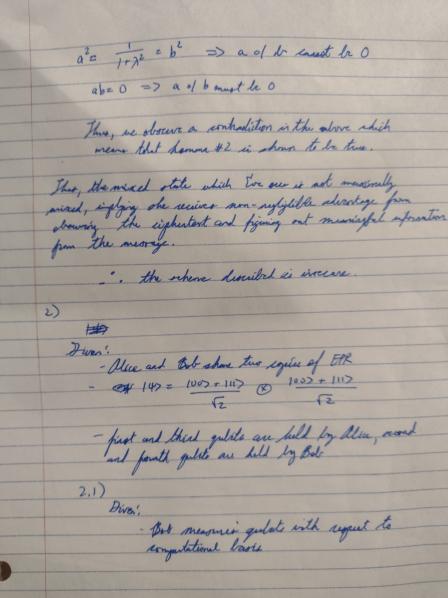 a² = 1/(1+λ²) = b² => a or b cannot be 0
ab = 0 => a or b must be 0
Thus, we observe a contradiction in the above which
means that lemma #2 is shown to be true.
Thus, the mixed state which Eve sees is not maximally
mixed, implying she receives non-negligible advantage from
observing the ciphertext and figuring out meaningful information
from the message.
∴ the scheme described is insecure.
2)
Given:
- Alice and Bob share two copies of EPR
- |ψ> = (|00> + |11>)/√2 ⊗ (|00> + |11>)/√2
- first and third qubits are held by Alice, second
and fourth qubits are held by Bob
2.1)
Given:
- Bob measures qubits with respect to
computational basis